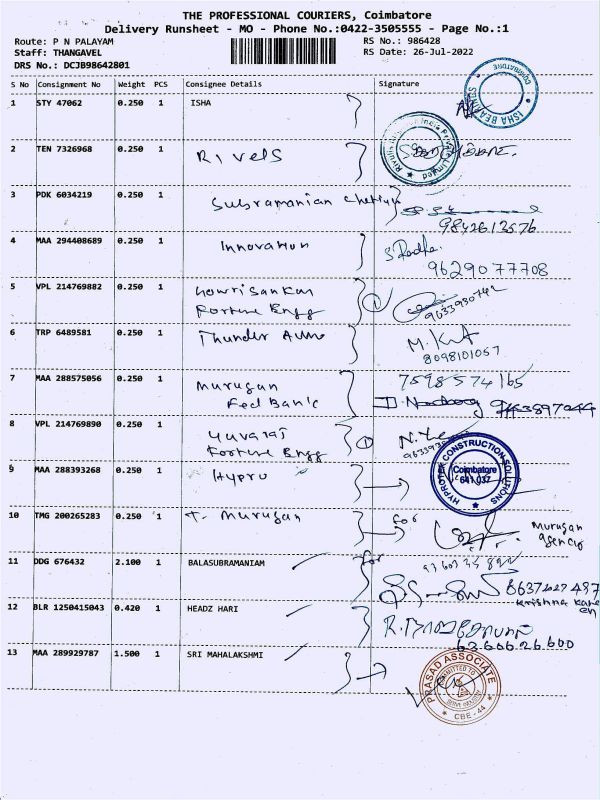 THE PROFESSIONAL COURIERS, Coimbatore
Delivery Runsheet - MO - Phone No.:0422-3505555 - Page No.:1
Route: P N PALAYAM RS No.: 986428
Staff: THANGAVEL RS Date: 26-Jul-2022
DRS No.: DCJB98642801
S No Consignment No Weight PCS Consignee Details Signature
1 STY 47062 0.250 1 ISHA
COIMBATORE
2 TEN 7326968 0.250 1 Rivels
3 PDK 6034219 0.250 1 Subramanian Chettiyar
9842613576
4 MAA 294408689 0.250 1 Innovation S Radha
9629077708
5 VPL 214769882 0.250 1 Gowrisankar
Fortune Engg 9633930742
6 TRP 6489581 0.250 1 Thunder
8098101057
7 MAA 288575056 0.250 1 Murugan 7598574165
Fed Bank
8 VPL 214769890 0.250 1 Yuvaraj
Fortune Engg
9 MAA 288393268 0.250 1 Hypro
HYPROTEK CONSTRUCTION SOLUTIONS
Coimbatore
641 037
10 TMG 200265283 0.250 1 T. Murugan for Murugan
agency
11 DDG 676432 2.100 1 BALASUBRAMANIAM for
8637627497
12 BLR 1250415043 0.420 1 HEADZ HARI
63 606 26 600
13 MAA 289929787 1.500 1 SRI MAHALAKSHMI
PRASAD ASSOCIATE
CBE - 44